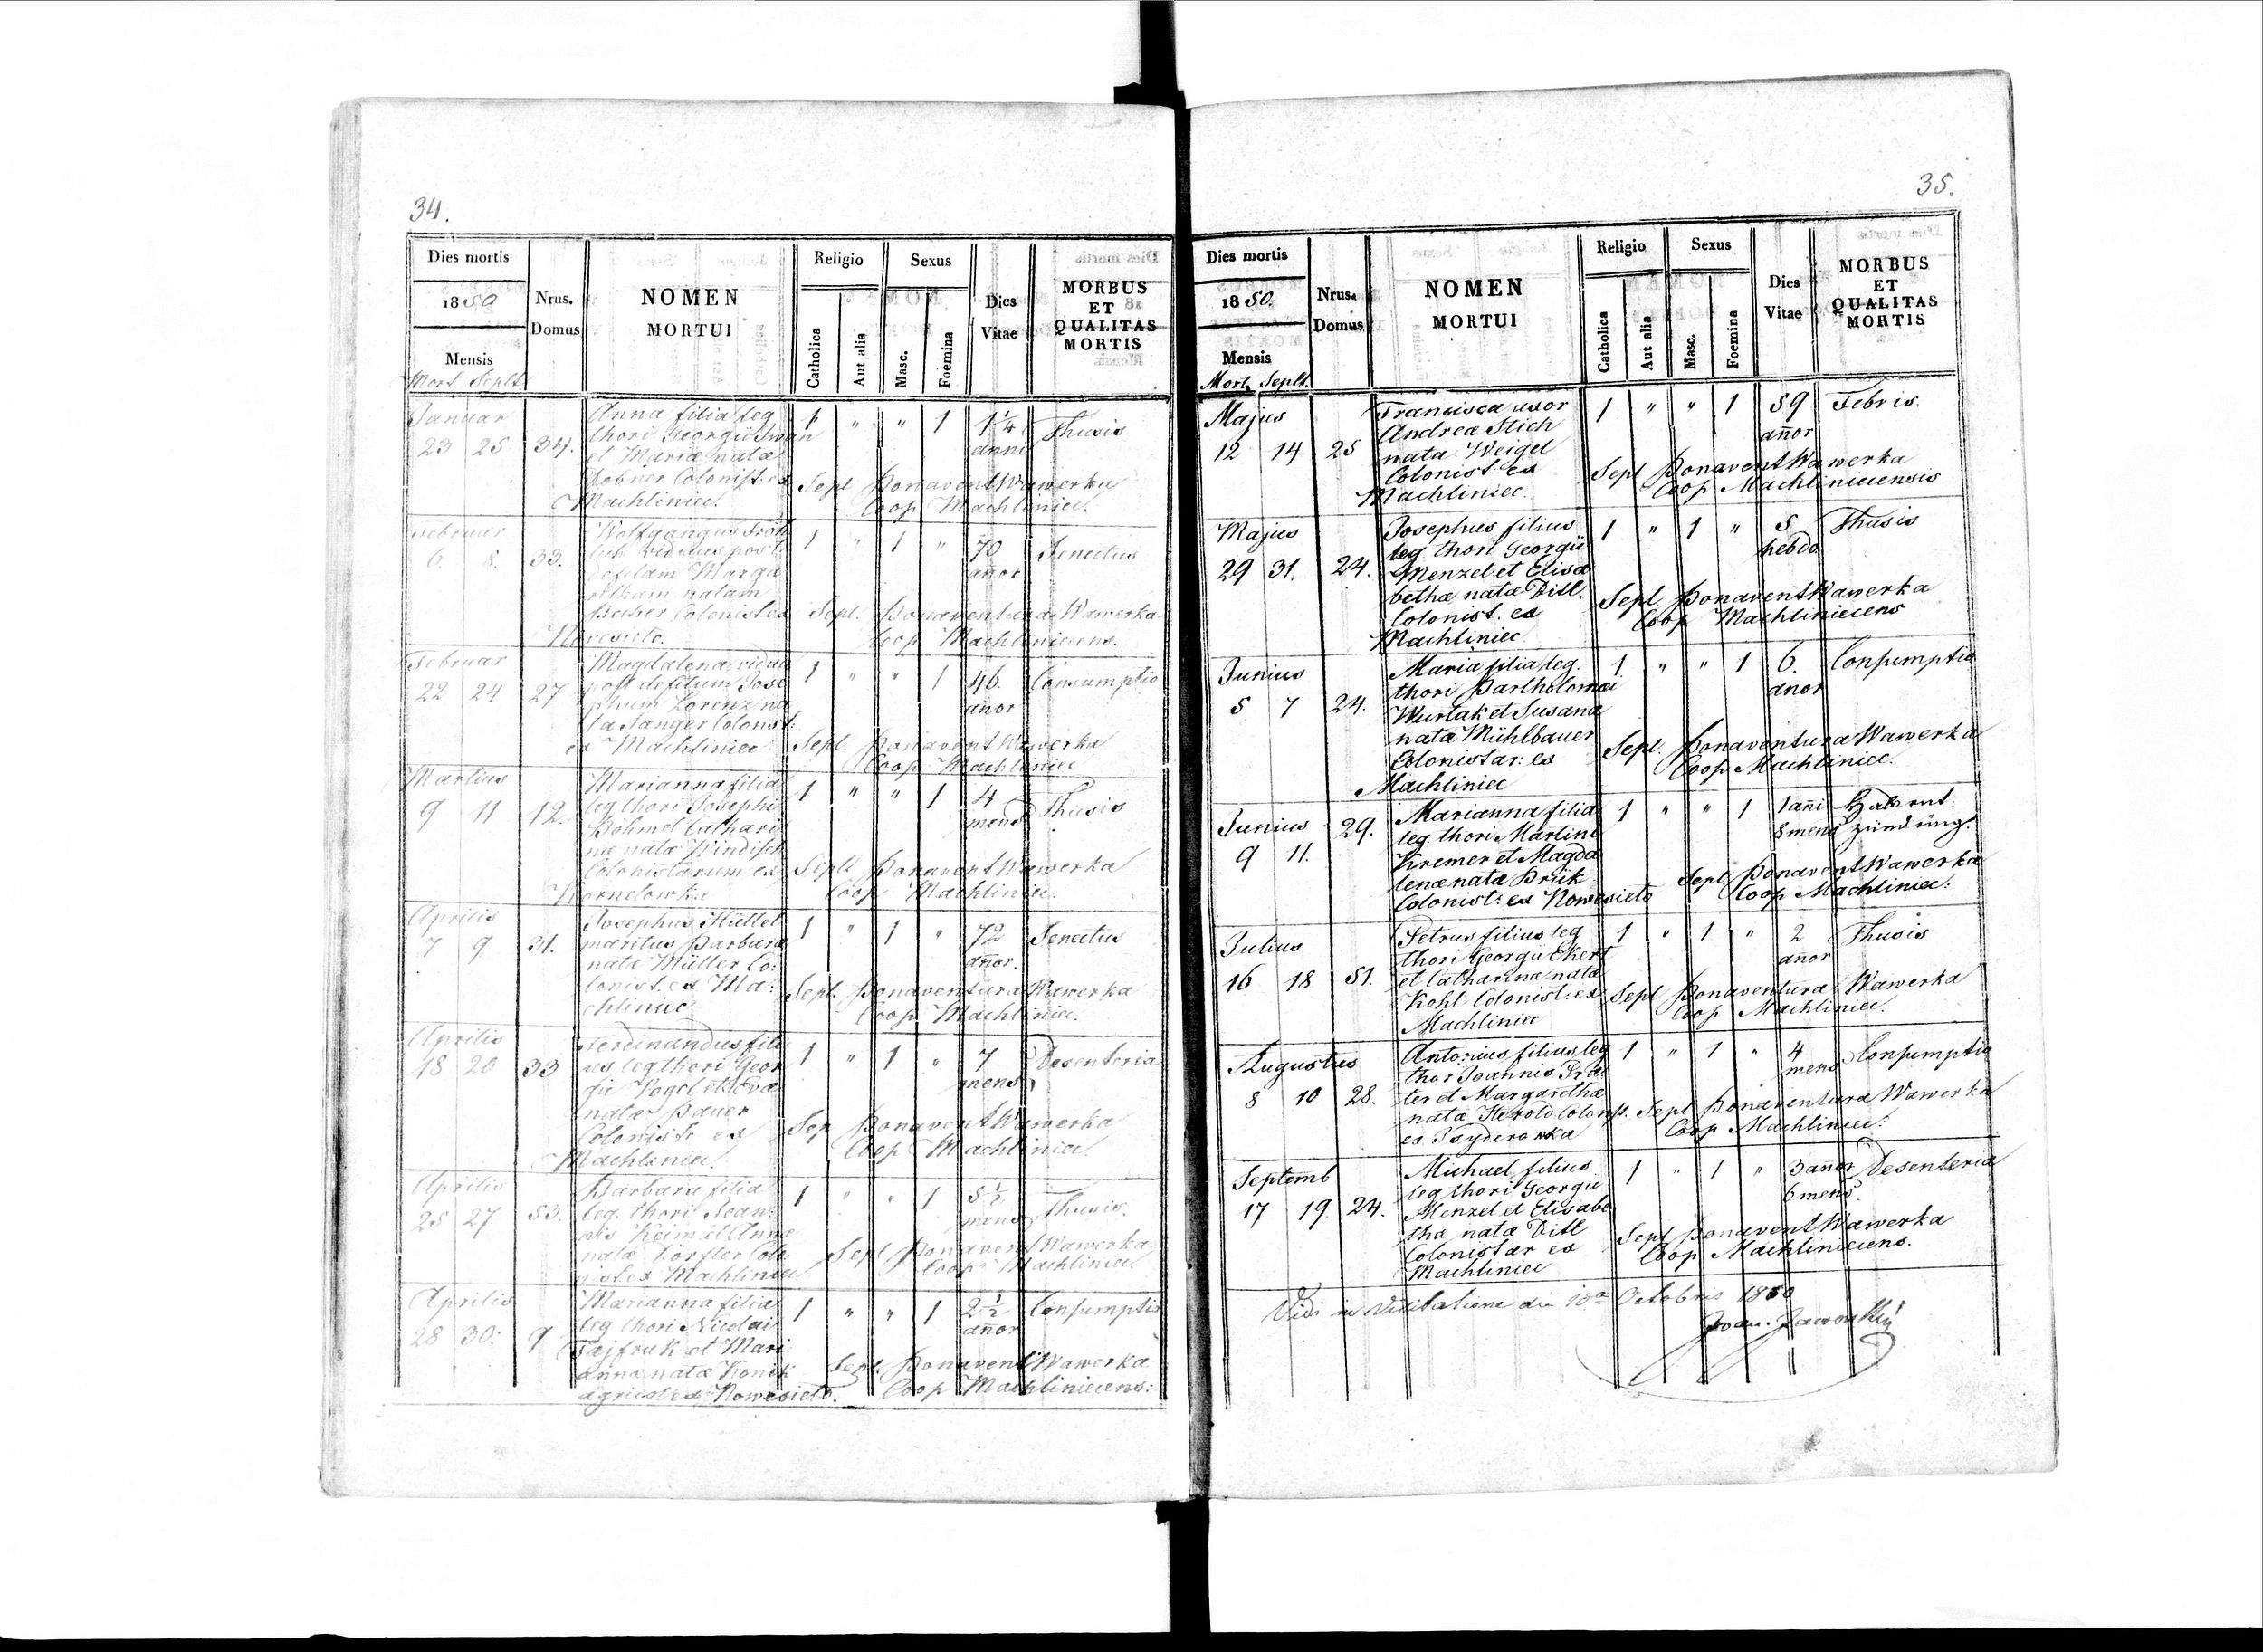 34.
Dies mortis
1850
Mensis
Mort. Seplt.
Nrus.
Domus
NOMEN
MORTUI
Religio
Catholica
Aut alia
Sexus
Masc.
Foemina
Dies
Vitae
MORBUS
ET
QUALITAS
MORTIS
Januar
23 25 34.
Anna filia leg
thori Georgii Iwan
et Mariæ natæ
Dobner Colonist. ex
Machliniec.
1 " " 1 1 1/4
anni
Thusis
Sepl Bonavent Wawerka
Coop Machliniec.
Februar
6. 8. 33.
Wolfgangus
viduus post
defctam Marga
retham natam
Becher Colonist ex
1 " 1 "
70
añor
Senectus
Sepl. Bonaventura Wawerka
Coop Machlinieciens.
Februar
22 24 27
Magdalena vidua
post defctum Jose
phum Lorenz na
ta Sanger Colonist:
ex Machliniec
1 " " 1
46.
añor
Consumptio
Sepl. Bonavent Wawerka
Coop Machliniec
Martius
9 11 12.
Marianna filia
leg thori Josephi
Böhm et Cathari
næ natæ Windisch
Colonistarum ex
Kornelowka
1 " " 1
4
mens
Thusis
Sepl Bonavent Wawerka
Coop Machliniec.
Aprilis
7 9 31.
Josephus Hüttel
maritus Barbara
natæ Müller Co:
lonist. ex Ma:
chliniec
1 " 1 "
72
añor.
Senectus
Sepl. Bonaventura Wawerka
Coop Machliniec.
Aprilis
18 20 33
Ferdinandus fili
us leg thori Geor
gii Vogel et Eva
natæ Bauer
Colonist ex
Machliniec.
1 " 1 "
7
mens
Desenteria
Sep Bonavent Wawerka
Coop Machliniec
Aprilis
25 27 53.
Barbara filia
leg. thori Joan:
nis Keim et Anna
natæ Colo:
nist ex Machliniec
1 " " 1
5 1/2
mens
Thusis.
Sepl Bonavent Wawerka
Coop Machliniec
Aprilis
28 30. 9
Marianna filia
leg thori Nicolai
Tajfruk et Mari
anna natæ Konik
agricol ex Nowesieto.
1 " " 1
2 1/2
añor
Consumptio
Sepl. Bonavent Wawerka
Coop Machlinieciens:
35.
Dies mortis
1850.
Mensis
Mort. Seplt.
Nrus.
Domus
NOMEN
MORTUI
Religio
Catholica
Aut alia
Sexus
Masc.
Foemina
Dies
Vitae
MORBUS
ET
QUALITAS
MORTIS
Majus
12 14 25
Francisca uxor
Andreæ Stich
nata Weigel
Colonist. ex
Machliniec.
1 " " 1
59
añor
Febris.
Sepl Bonavent Wawerka
Coop Machlinieciensis
Majus
29 31. 24.
Josephus filius
leg thori Georgii
Menzel et Elisa
betha natæ Ditl.
Colonist. ex
Machliniec
1 " 1 "
5
hebdo
Thusis
Sepl. Bonavent Wawerka
Coop Machlinieciens
Junius
5 7 24.
Maria filia leg.
thori Bartholomæi
Wurtak et Susana
natæ Mühlbauer
Colonistar: ex
Machliniec
1 " " 1
6.
añor
Consumptio
Sepl. Bonaventura Wawerka
Coop Machliniec.
Junius
9 11. 29.
Marianna filia
leg. thori Martini
Kremer et Magda
lenæ natæ Brük
Colonist: ex Nowesieto
1 " " 1
1 añi
8 mens
Halsent:
zündung.
Sepl. Bonavent Wawerka
Coop Machliniec:
Julius
16 18 51.
Petrus filius leg
thori Georgii Ekert
et Catharina natæ
Kohl Colonist: ex
Machliniec
1 " 1 "
2
añor
Thusis
Sepl Bonaventura Wawerka
Coop Machliniec.
Augustus
8 10 28.
Antonius filius leg
thor Joannis Pra
ter et Margaretha
natæ Herold Colonist.
ex Izyderowka
1 " 1 "
4
mens
Consumptio
Sepl Bonaventura Wawerka
Coop Machliniec:
Septemb
17 19 24.
Michael filius
leg thori Georgii
Menzel et Elisabe
tha natæ Ditl
Colonistar ex
Machliniec
1 " 1 "
3 añor
6 mens.
Desenteria
Sepl Bonavent Wawerka
Coop Machlinieciens.
Vidi in Visitatione die 10a Octobris 1850